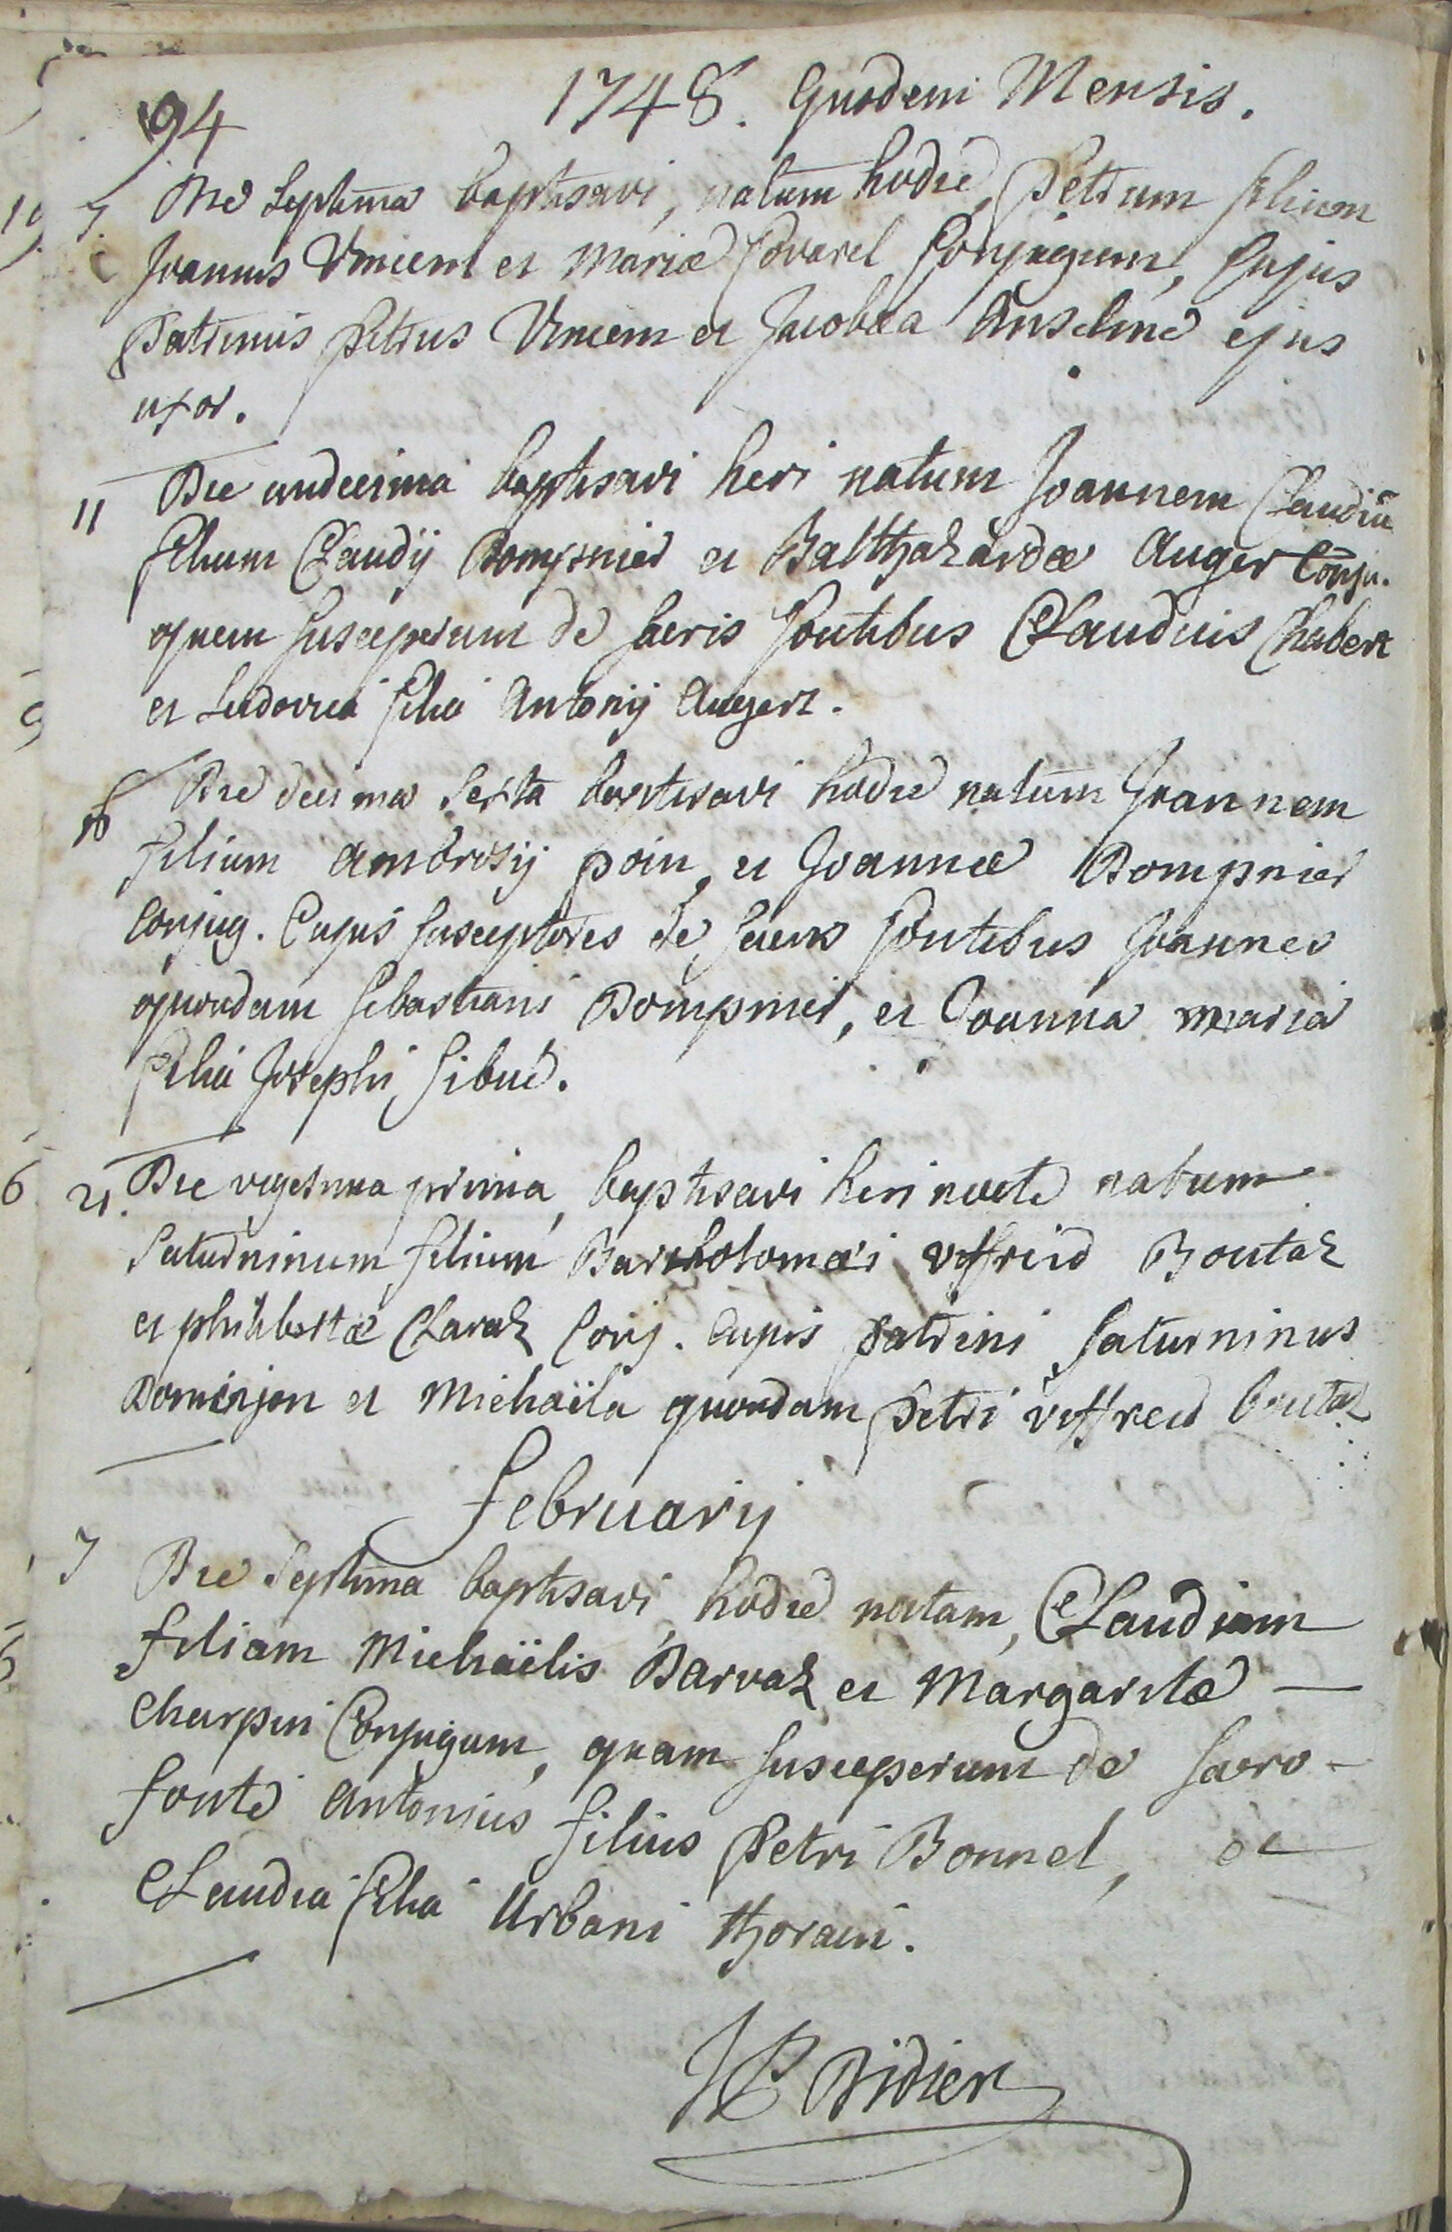 94
1748. Quodem Mensis.
7 Die Septima baptisavi, natum hodie, Petrum filium
Joannis Vincent et Mariæ Covarel Conjugum, Cujus
Patrinus Petrus Vincent et Jacobæa Anselme ejus
uxor.
11 Die undecima baptisavi heri natum Joannem Claudiū
filium Claudij Dompnier et Balthazardæ Auger Conju.
quem susceperunt de sacris fontibus Claudius Chabert
et Ludovica filia Antonij Augert.
Die decima Sexta baptisavi hodie natum Joannem
filium Ambrosij poin, et Joannæ Dompnier
Conjug. Cujus susceptores de sacris fontibus Joannes
quondam Sebastiani Dompnier, et Joanna maria
filia Josephi Sibué.
21. Die vigesima prima, baptisavi heri nocte natum
Saturninum filium Bartholomæi viffreid Boutaz
et philibertæ Claraz Conj. cujus patrini Saturninus
Dominjon et Michaïla quondam Petri viffreid boutaz
Februarij
7 Die Septima baptisavi, hodie natam, Claudiam
filiam Michaëlis Darvaz et Margaritæ
Charpin Conjugum, quam susceperunt de sacro
fonte Antonius filius Petri Bonnel, et
Claudia filia Urbani Thorain.
JP Didier